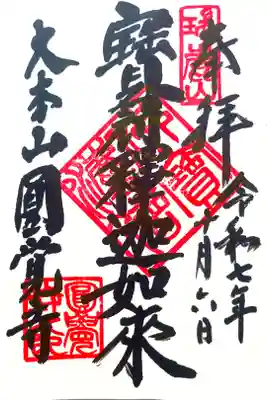 瑞鹿山
奉拝
令和七年
十月六日
寶冠釋迦如來
大本山圓覚寺